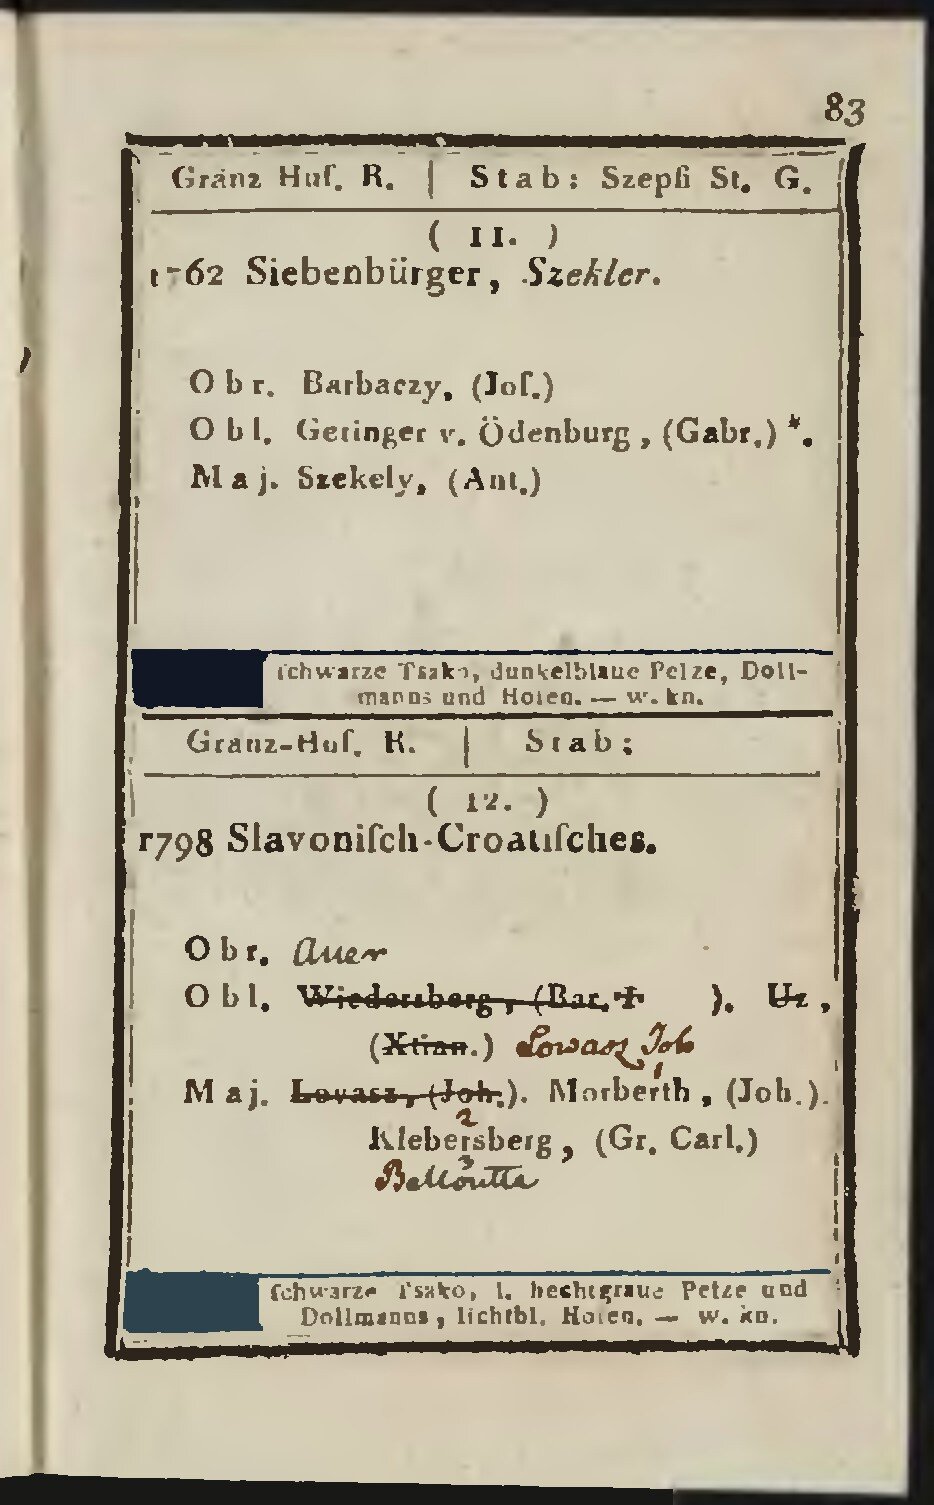 83
Gränz Huſ. R. | Stab: Szepſi St. G.
( 11. )
1762 Siebenbürger, Szekler.
Obr. Barbaczy, (Joſ.)
Obl. Geringer v. Ödenburg, (Gabr.) *.
Maj. Szekely, (Ant.)
ſchwarze Tsako, dunkelblaue Pelze, Doll-
manns und Hoſen. — w. kn.
Gränz-Huſ. R. | Stab:
( 12. )
1798 Slavoniſch-Croatiſches.
Obr. Auer
Obl. Wiedersberg, (Bar. ). Uz,
(Xtian.) Lowasz Joh
Maj. Lovasz, (Joh.). Morberth, (Joh.).
2
Klebersberg, (Gr. Carl.)
3
Belloutte
ſchwarze Tsako, l. hechtgraue Pelze und
Dollmanns, lichtbl. Hoſen. — w. kn.